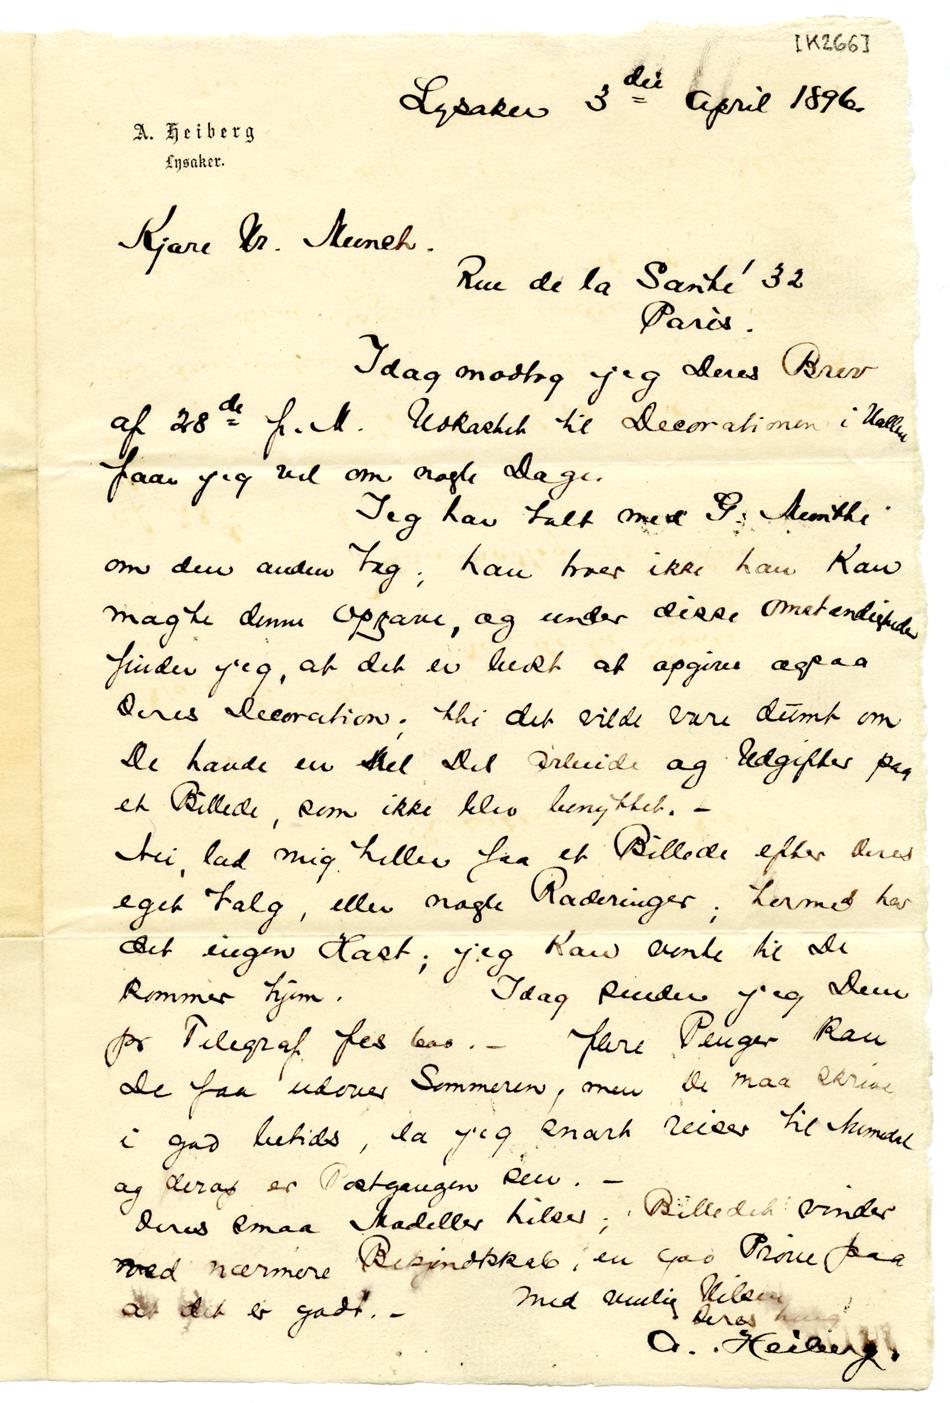 [K266]
Lysaker 3die April 1896.
A. Heiberg
Lysaker.
Kjære Hr. Munch.
Rue de la Santé 32
Paris.
Idag modtog jeg Deres Brev
af 28de f. M. Udkastet til Decorationen i Hallen
faar jeg vel om nogle Dage.
Jeg har talt med G. Munthe
om den anden Væg; han troer ikke han kan
magte denne Opgave, og under disse Omstændigheder
finder jeg, at det er bedst at opgive ogsaa
Deres Decoration; thi det vilde være dumt om
De havde en hel Del Arbeide og Udgifter paa
et Billede, som ikke blev benyttet. –
Nei, lad mig heller faa et Billede efter Deres
eget Valg, eller nogle Raderinger; hermed har
det ingen Hast; jeg kan vente til De
kommer hjem. Idag sender jeg Dem
pr Telegraf fcs 600. – flere Penger kan
De faa udover Sommeren, men De maa skrive
i god betids, da jeg snart reiser til Numedal
og derop er Postgangen sen. –
Deres smaa Modeller hilser; Billedet vinder
ved nærmere Bekjendtskab; en god Prøve paa
at det er godt. – Med venlig Hilsen
Deres
A. Heiberg.